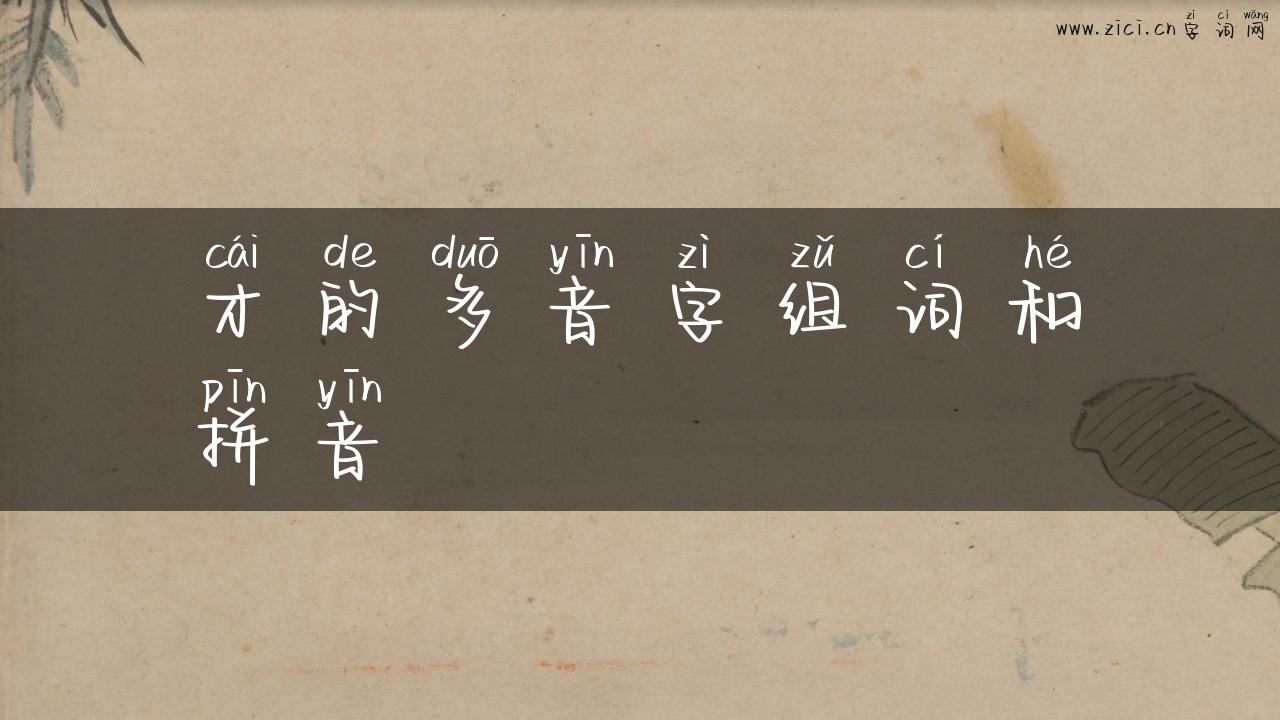 zì cí wǎng
www.zici.cn 字词网
cái de duō yīn zì zǔ cí hé
才的多音字组词和
pīn yīn
拼音